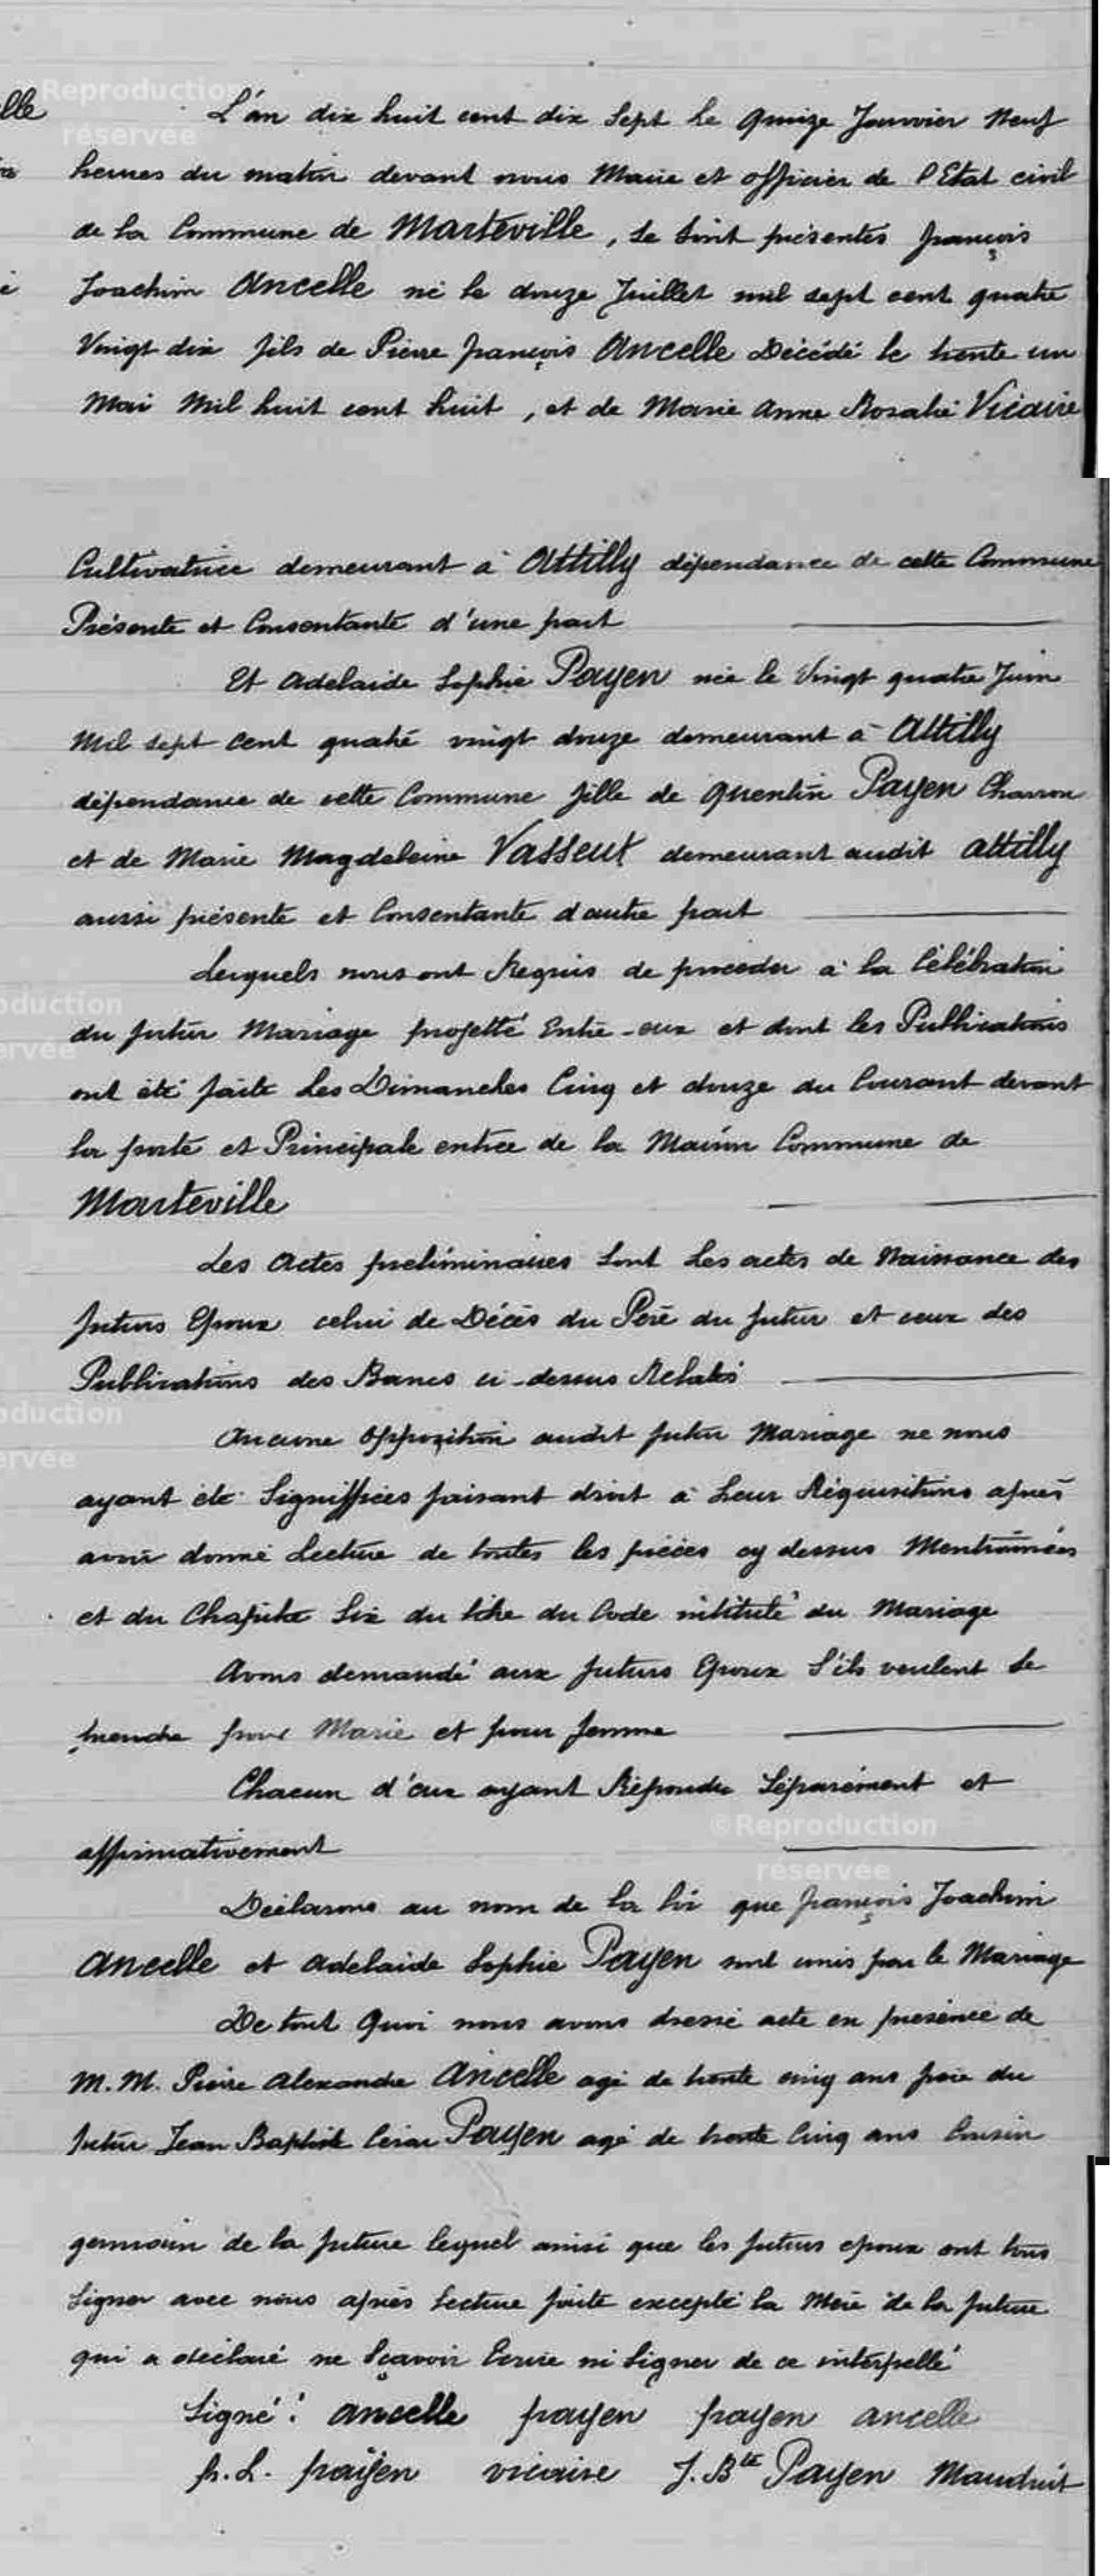 ©Reproduction
réservée
lle
L'an dix huit cent dix Sept le Quinze Janvier Neuf
heures du matin devant nous Maire et officier de l'Etat civil
de la Commune de Marteville, se sont présentés françois
Joachim Ancelle né le douze Juillet mil sept cent quatre
Vingt dix fils de Pierre françois Ancelle Décédé le trente un
Mai Mil huit cent huit, et de Marie Anne Rosalie Vicaire
Cultivatrice demeurant à Attilly dépendance de cette Commune
Présente et Consentante d'une part
Et Adelaide Sophie Payen née le Vingt quatre Juin
Mil sept cent quatre vingt douze demeurant à Attilly
dépendance de cette Commune fille de Quentin Payen Charron
et de Marie Magdeleine Vasseur demeurant audit Attilly
aussi présente et Consentante d'autre part
Lesquels nous ont Requis de proceder à la Célébration
du futur Mariage projetté Entre-eux et dont les Publications
ont été faite les Dimanches Cinq et douze du Courant devant
la porte et Principale entrée de la Maison Commune de
Marteville
Les Actes préliminaires Sont Les actes de Naissance des
futurs Epoux celui de Décès du Père du futur et ceux des
Publications des Bancs ci-dessus Relatés
Aucune Opposition audit futur Mariage ne nous
ayant été Signiffiées faisant droit à Leur Réquisitions après
avoir donné Lecture de toutes les pièces cy dessus Mentionnées
et du Chapitre Six du titre du Code intitulé du Mariage
Avons demandé aux futurs Epoux S'ils veulent se
prendre pour Marie et pour femme
Chacun d'eux ayant Répondu Séparément et
affirmativement
Déclarons au nom de la loi que françois Joachim
Ancelle et Adelaide Sophie Payen sont unis par le Mariage
De tout Quoi nous avons dressé acte en présence de
M.M. Pierre Alexandre Ancelle agé de trente cinq ans frère du
futur Jean Baptiste Cesar Payen agé de trente Cinq ans Cousin
germain de la future lequel ainsi que les futurs epoux ont tous
Signer avec nous après Lecture faite excepté la Mère de la future
qui a déclaré ne Sçavoir Ecrire ni Signer de ce interpellé
Signé: ancelle payen payen ancelle
p.L. paÿen vicaire J.Bte Payen Mauduit
oduction
ervée
oduction
ervée
©Reproduction
réservée